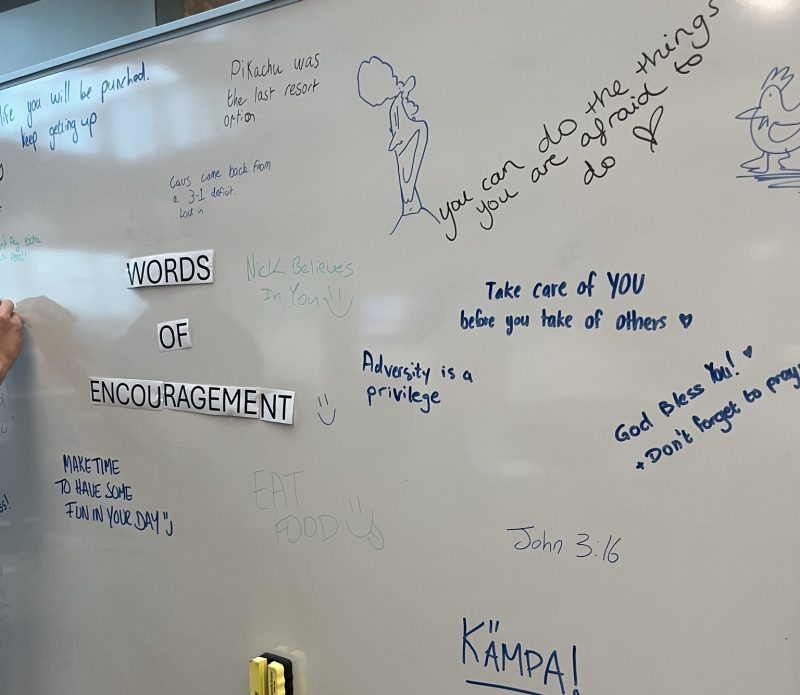 life you will be punched.
keep getting up
Pikachu was
the last resort
option.
you can do the things
you are afraid to
do
Cavs come back from
a 3-1 deficit.
Lock in
WORDS
OF
ENCOURAGEMENT
Nick Believes
In You
Take care of YOU
before you take of others
Adversity is a
privilege
God Bless You!
+ Don't forget to pray
MAKE TIME
TO HAVE SOME
FUN IN YOUR DAY
EAT
FOOD
John 3:16
KÄMPA!